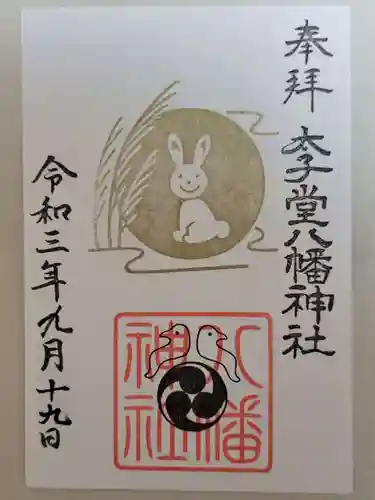 奉拝 太子堂八幡神社
八幡
神社
令和三年九月十九日